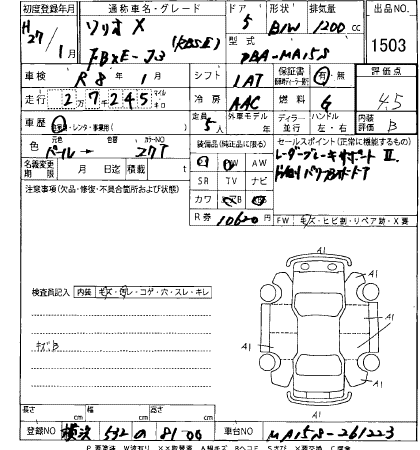 初度登録年月 通称車名・グレード ドア 形状 排気量 出品NO.
H27/1月 ソリオ X 5 B/W 1200 cc 1503
FBXE-J3 型式 DBA-MA15S
車検 R8年1月 シフト 1AT 保証書 有・無 評価点
走行 27245 マイル キロ 冷房 AAC 燃料 G 4.5
車歴 自家用・レンタ・事業用( ) 定員 5人 外車モデル 年 ディラー 並行 ハンドル 左・右 内装 B
色 パール→ カラーNO. 27T 装備品(純正品に限る) セールスポイント(正常に機能するもの)
名義変更期限 月 日迄 積載 t PS PW AW レーダーブレーキサポートⅡ
注意事項(欠品・修復・不具合箇所および状態) SR TV ナビ 片側パワスラドア
カワ エアB
R券 10620 FW キズ・ヒビ割・リペア跡・X要
A1
A1 A1
検査員記入 内装 キズ・汚レ・コゲ・穴・スレ・キレ
キズB
A1 A1
A1 A1
A1
長さ cm 幅 cm 高さ cm
登録NO 横浜 532 の 81-00 車台NO MA15S-261223